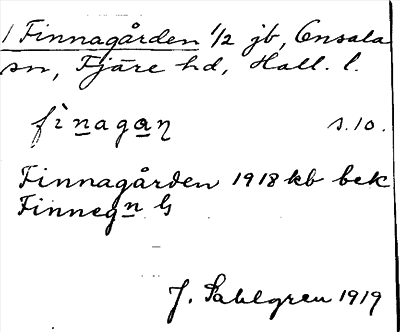 1 Finnagården 1/2 jb, Onsala
sn, Fjäre hd, Hall. l.
fìnagan s.10.
Finnagården 1918 kb bek
Finnegn G
J. Sahlgren 1919